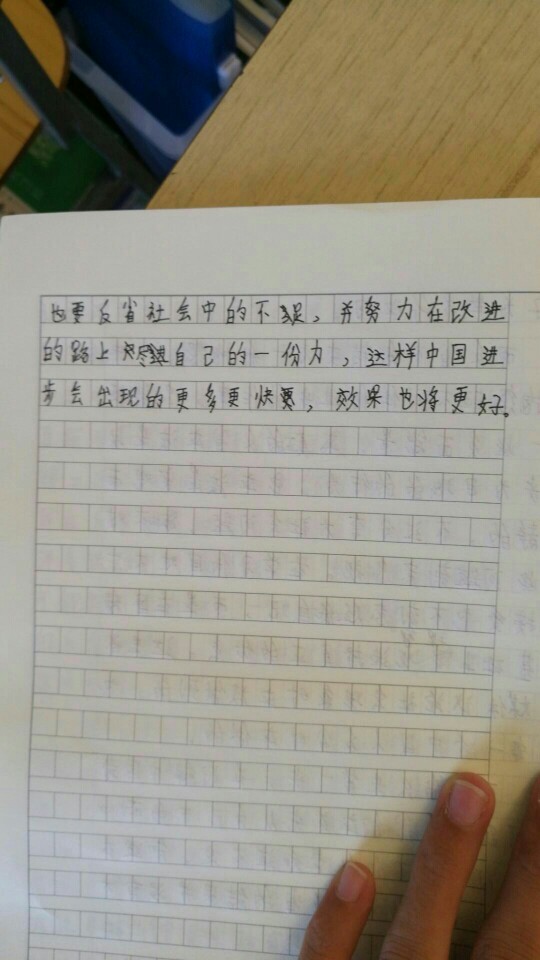 也要反省社会中的不足，并努力在改进
的路上尽自己的一份力，这样中国进
步会出现的更多更快，效果也将更好。